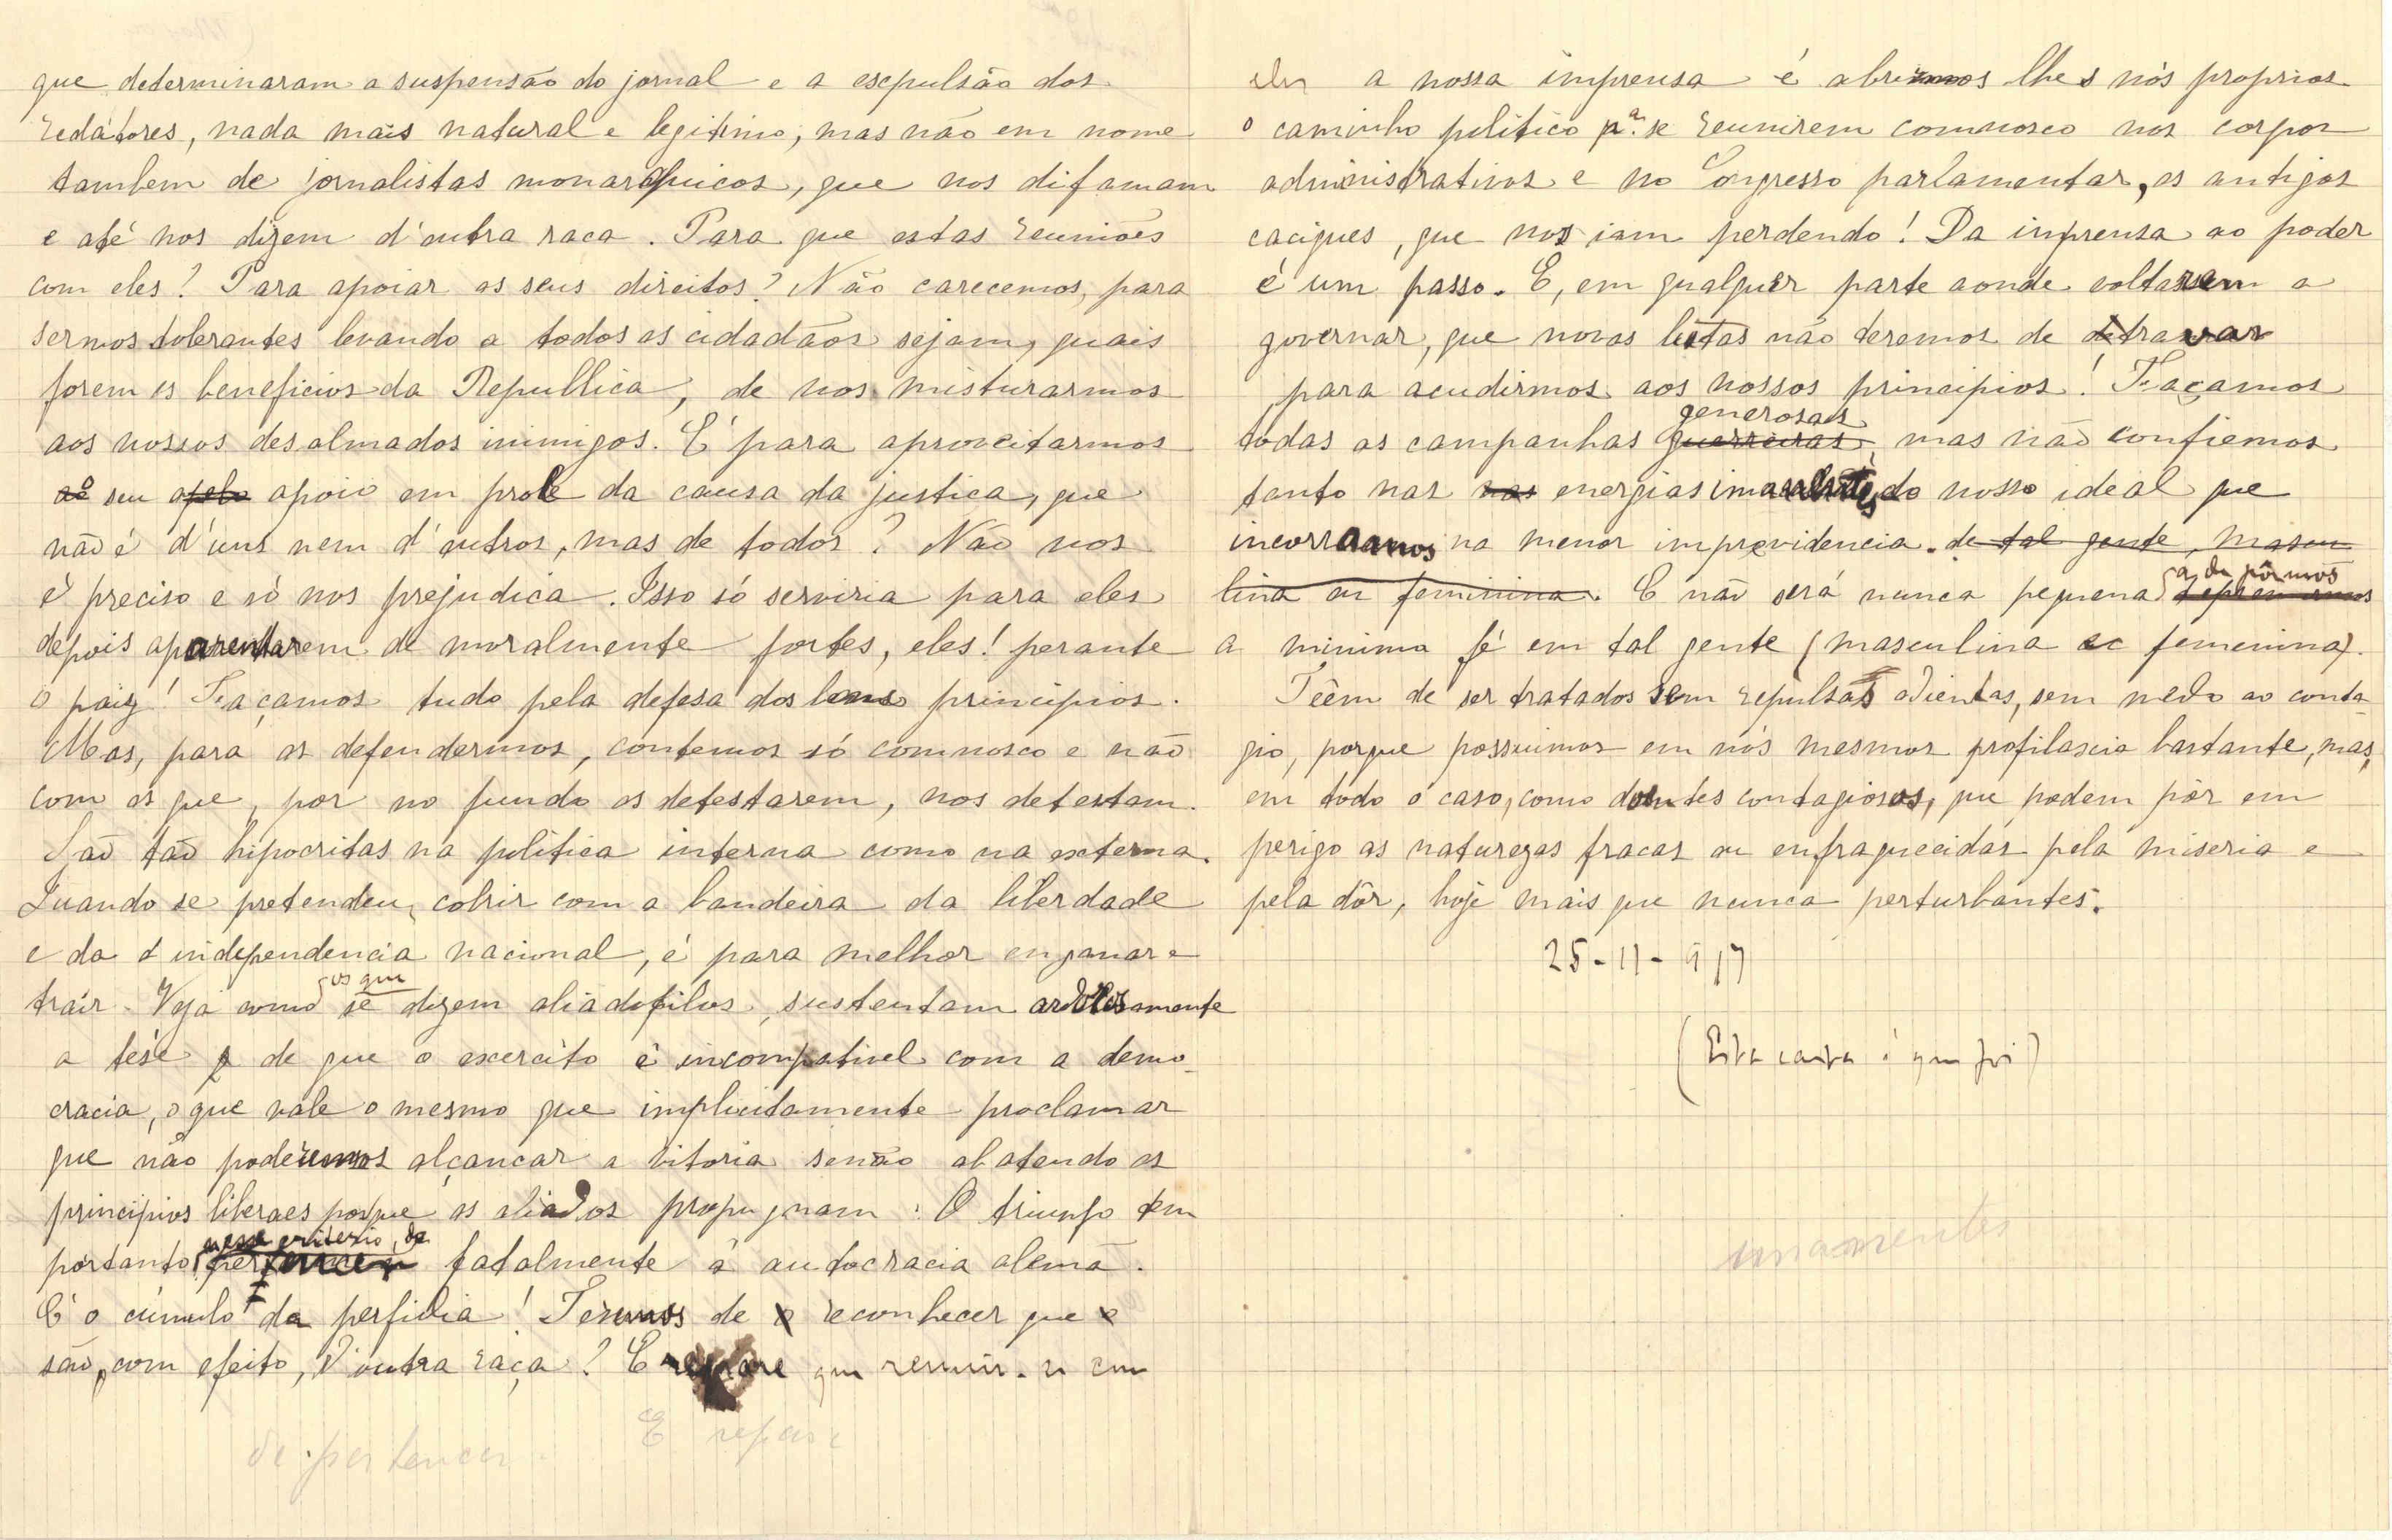 que determinaram a suspensão do jornal e a escpulsão dos
redátores, nada mais natural e legitimo, mas não em nome
tambem de jornalistas monarquicos, que nos difamam
e até nos dizem d'outra raca. Para que estas reuniões
com eles? Para apoiar os seus direitos? Não carecemos, para
sermos tolerantes levando a todos os cidadãos sejam, quais
forem os beneficios da Republica, de nos misturarmos
aos nossos desalmados inimigos. É para aproveitarmos
o seu apoio em prol da causa da justica, que
não é d'uns nem d'outros, mas de todos? Não nos
é preciso e só nos prejudica. Isso só serviria para eles
depois aparentarem de moralmente fortes, eles! perante
o paiz! Façamos tudo pela defesa dos bons principios.
Mas, para os defendermos, contemos só comnosco e não
com os que, por no fundo os detestarem, nos detestam.
São tão hipocritas na politica interna como na externa.
Quando se pretendeu, cobrir com a bandeira da liberdade
e da independencia nacional, é para melhor enganar e
trair. Veja como
os que
se dizem aliadofilos, sustentam ardilosamente
a tése de que o exercito é incompativel com a demo-
cracia, o que vale o mesmo que implicitamente proclamar
que não poderemos alçancar a vitoria senão abatendo os
principios liberaes porque os aliados propugnam. O triunfo tem
nesse criterio, de
portanto pertencer fatalmente á autocracia alemã.
É o cúmulo da perfidia! Teremos de reconhecer que
são, com efeito, d'outra raça? E repare que reunir-se com
E repare
de pertencer
eles a nossa imprensa é abrirmos lhes nós proprios
o caminho politico pª. se reunirem comnosco nos corpos
administrativos e no Congresso parlamentar, os antigos
caciques, que nos iam perdendo! Da imprensa ao poder
é um passo. E, em qualquer parte aonde voltassem a
governar, que novas lutas não teremos de travar
para acudirmos aos nossos principios! Façamos
generosas
todas as campanhas guerreiras, mas não confiemos
tanto nas nas energias imanentes do nosso ideal que
incorramos na menor imprevidencia. de tal gente, mascu
lina ou feminina. E não será nunca pequena
a de pôrmos
a minima fé em tal gente (masculina ou femenina).
Têem de ser tratados sem repulsas odientas, sem medo ao conta-
gio, porque possuimos em nós mesmos profilascia bastante, mas,
em todo o caso, como doentes contagiosos, que podem pôr em
perigo as naturezas fracas ou enfraquecidas pela miseria e
pela dôr, hoje mais que nunca perturbantes.
25-11-917
(Esta carta é que foi)